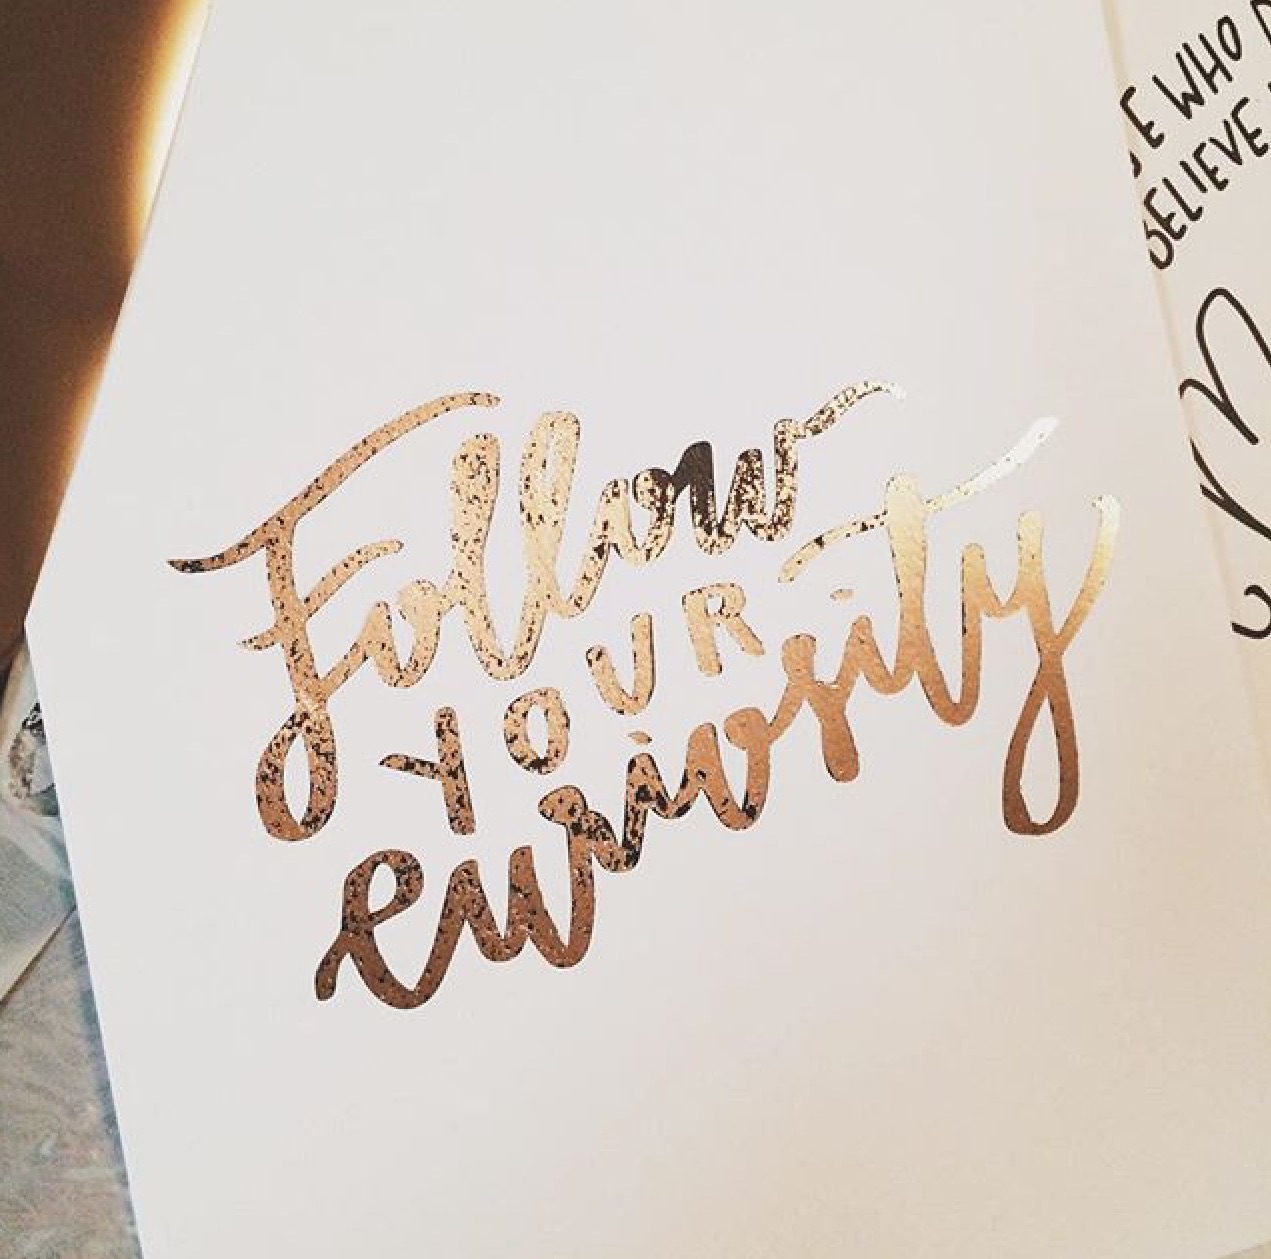 Follow
YOUR
curiosity
WHO
BELIEVE